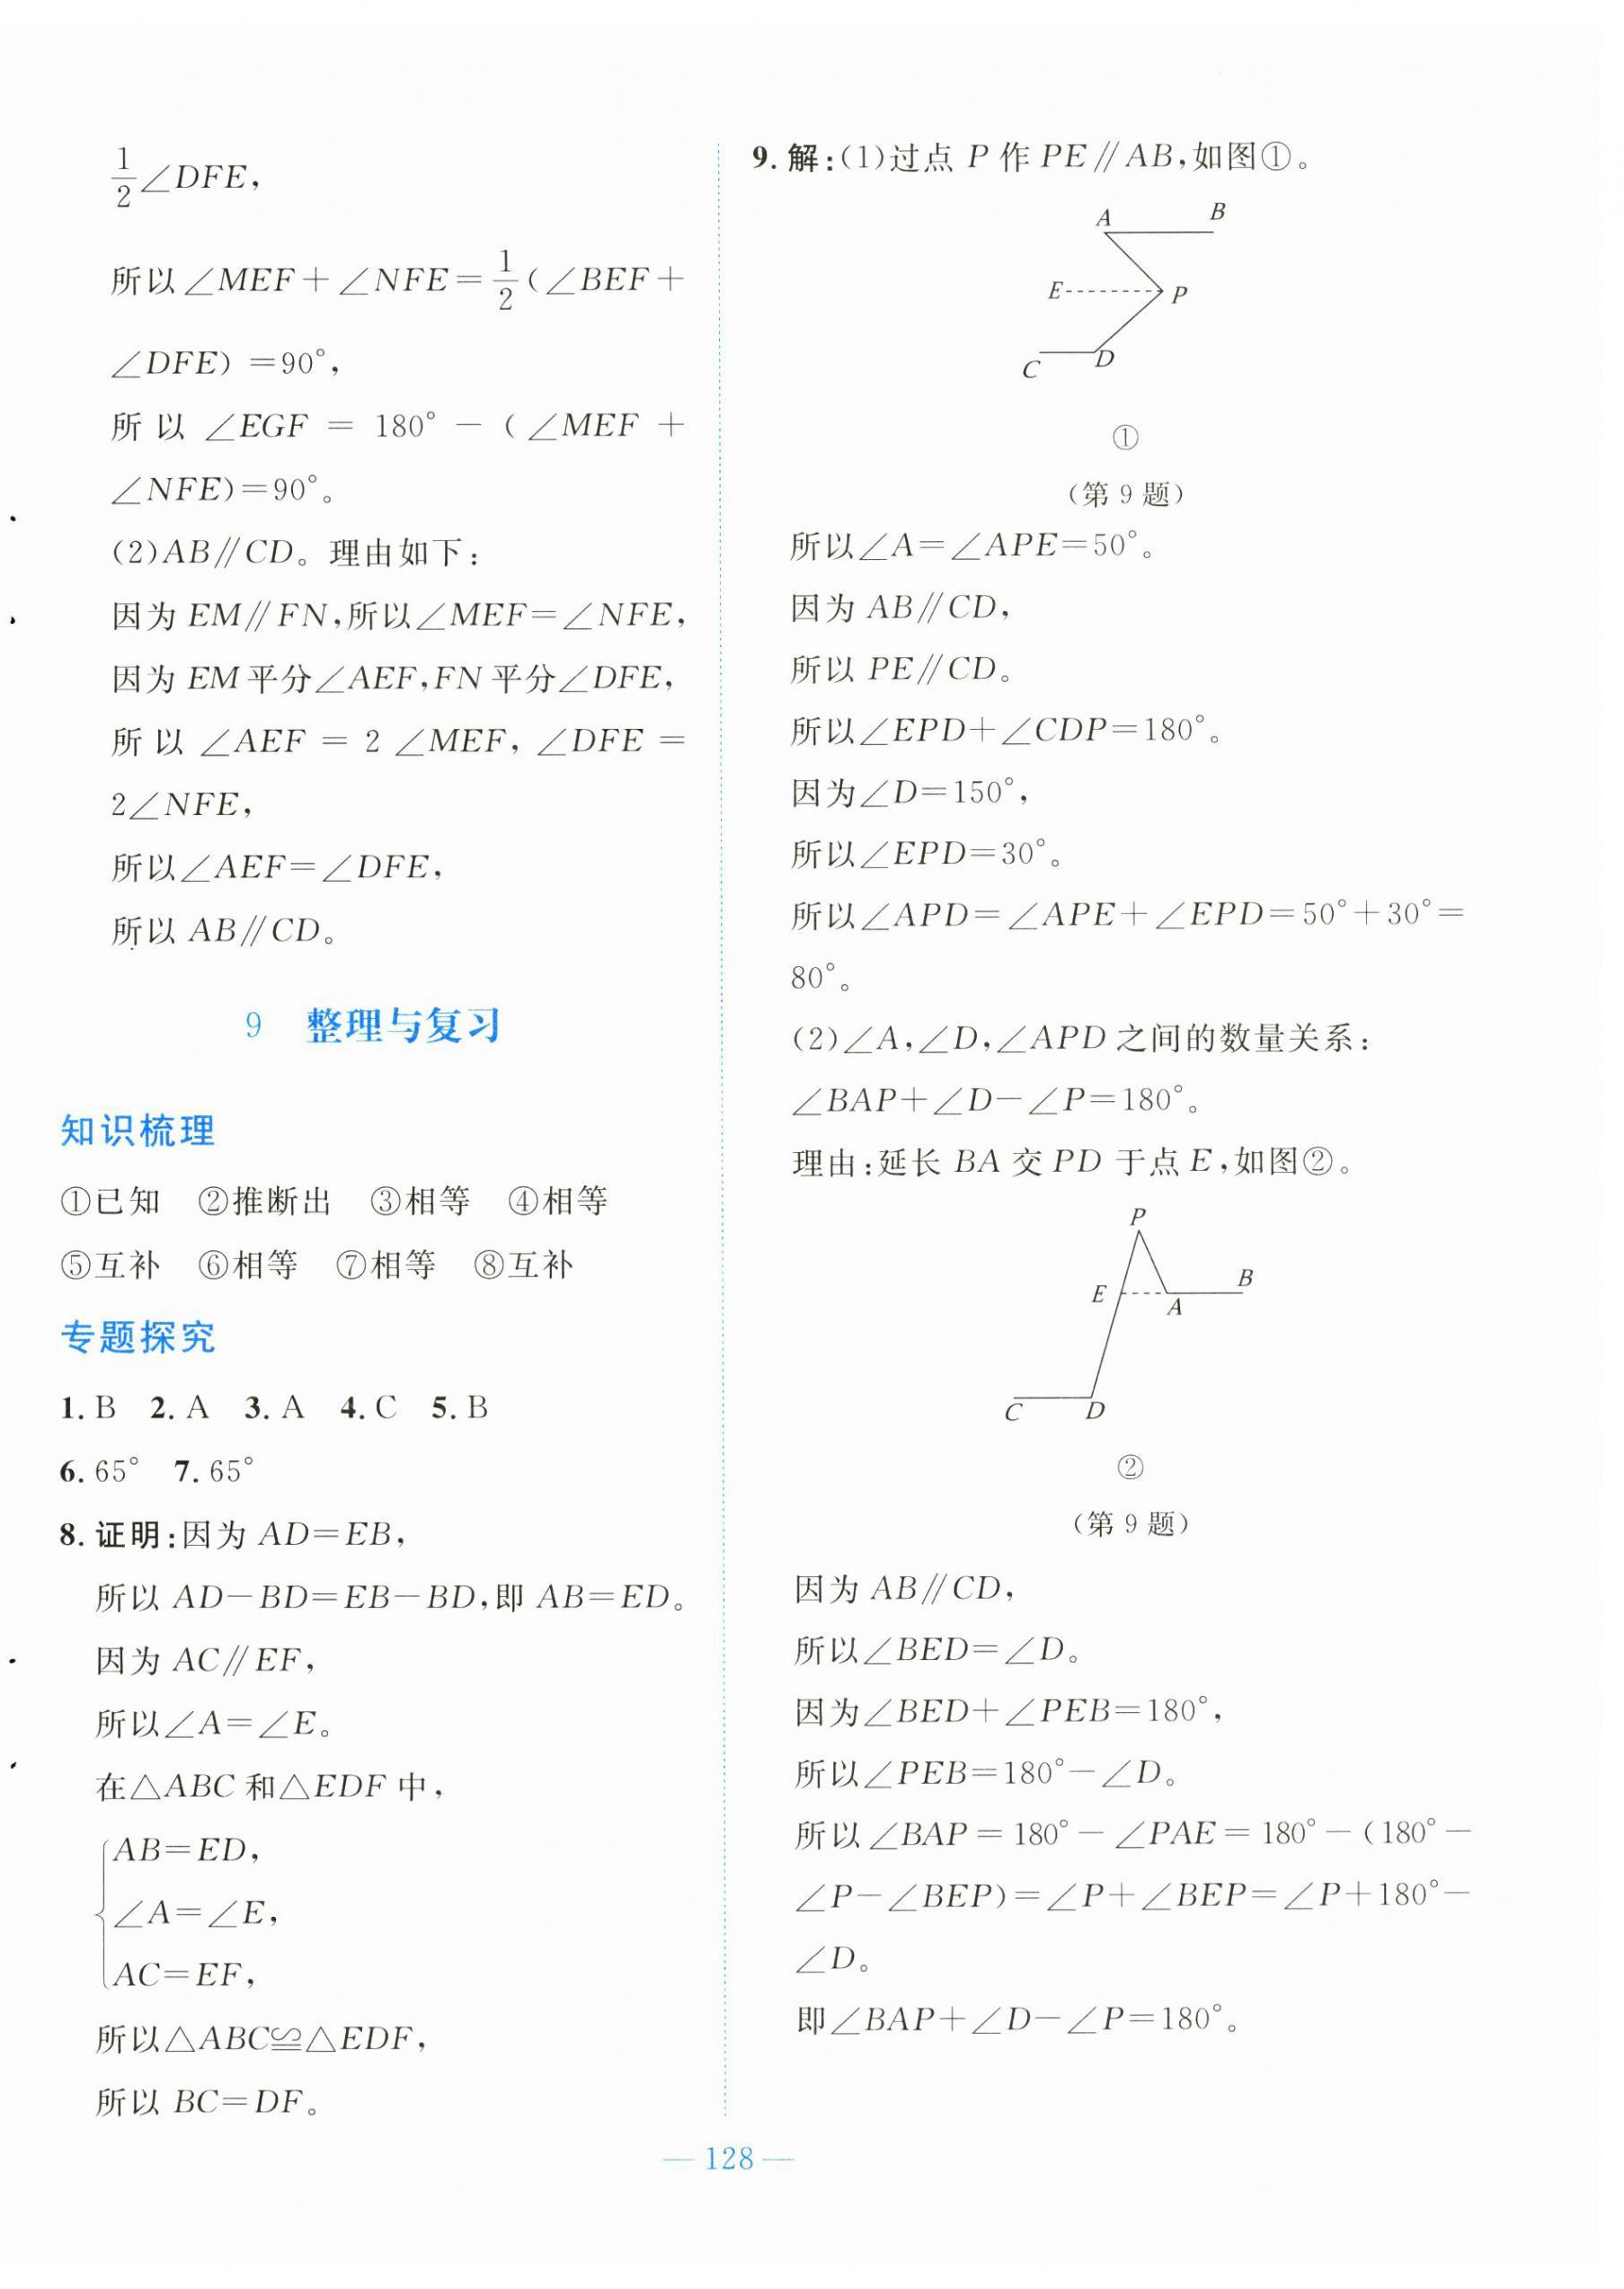 1/2∠DFE,
所以∠MEF+∠NFE=1/2(∠BEF+
∠DFE)=90°,
所以 ∠EGF = 180° - (∠MEF +
∠NFE)=90°。
(2)AB∥CD。理由如下:
因为 EM∥FN,所以∠MEF=∠NFE,
因为 EM 平分∠AEF,FN 平分∠DFE,
所以 ∠AEF = 2 ∠MEF, ∠DFE =
2∠NFE,
所以∠AEF=∠DFE,
所以 AB∥CD。
9 整理与复习
知识梳理
①已知 ②推断出 ③相等 ④相等
⑤互补 ⑥相等 ⑦相等 ⑧互补
专题探究
1. B 2. A 3. A 4. C 5. B
6. 65° 7. 65°
8. 证明:因为 AD=EB,
所以 AD-BD=EB-BD,即 AB=ED。
因为 AC∥EF,
所以∠A=∠E。
在△ABC 和△EDF 中,
AB=ED,
∠A=∠E,
AC=EF,
所以△ABC≌△EDF,
所以 BC=DF。
9. 解:(1)过点 P 作 PE∥AB,如图①。
A B
E P
C D
①
(第 9 题)
所以∠A=∠APE=50°。
因为 AB∥CD,
所以 PE∥CD。
所以∠EPD+∠CDP=180°。
因为∠D=150°,
所以∠EPD=30°。
所以∠APD=∠APE+∠EPD=50°+30°=
80°。
(2)∠A,∠D,∠APD 之间的数量关系:
∠BAP+∠D-∠P=180°。
理由:延长 BA 交 PD 于点 E,如图②。
P
E A B
C D
②
(第 9 题)
因为 AB∥CD,
所以∠BED=∠D。
因为∠BED+∠PEB=180°,
所以∠PEB=180°-∠D。
所以∠BAP=180°-∠PAE=180°-(180°-
∠P-∠BEP)=∠P+∠BEP=∠P+180°-
∠D。
即∠BAP+∠D-∠P=180°。
— 128 —